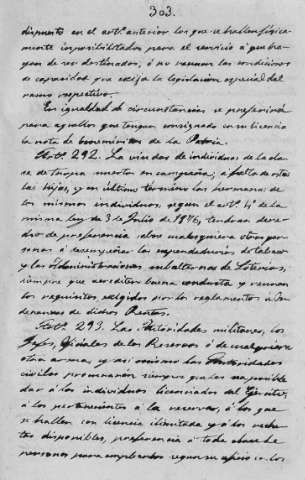 303.
dispuesto en el artº anterior los que se hallen física-
mente imposibilitados para el servicio á que ha-
yan de ser destinados, ó no reunan las condiciones
de capacidad que exija la legislación especial del
ramo respectivo.
En igualdad de circunstancias se preferirá
para aquellos que tengan consignado en su licencia
la nota de benemérito de la Patria.
Artº. 292. Las viudas de individuos de la cla-
se de tropa muertos en campaña; á falta de estas
las hijas, y en último término las hermanas de
los mismos individuos, segun el artº 4º de la
misma ley de 3 de Julio de 1876, tendran dere-
cho de preferencia sobre cualesquiera otras per-
sonas á desempeñar las expendedurias de tabaco
y las Administraciones subalternas de Loterias,
siempre que acrediten buena conducta y reunan
los requisitos exigidos por los reglamentos ú Or-
denanzas de dichas Rentas.
Artº. 293. Las Autoridades militares, los
Jefes, Oficiales de las Reservas ó de cualquiera
otra arma, y asi mismo las Autoridades
civiles procurarán siempre que les sea posible
dar á los individuos licenciados del Ejército,
á los pertenecientes á la reserva, á los que
se hallen con licencia ilimitada y á los reclu-
tas disponibles, preferencia á toda clase de
personas para emplearlos segun su oficio en los